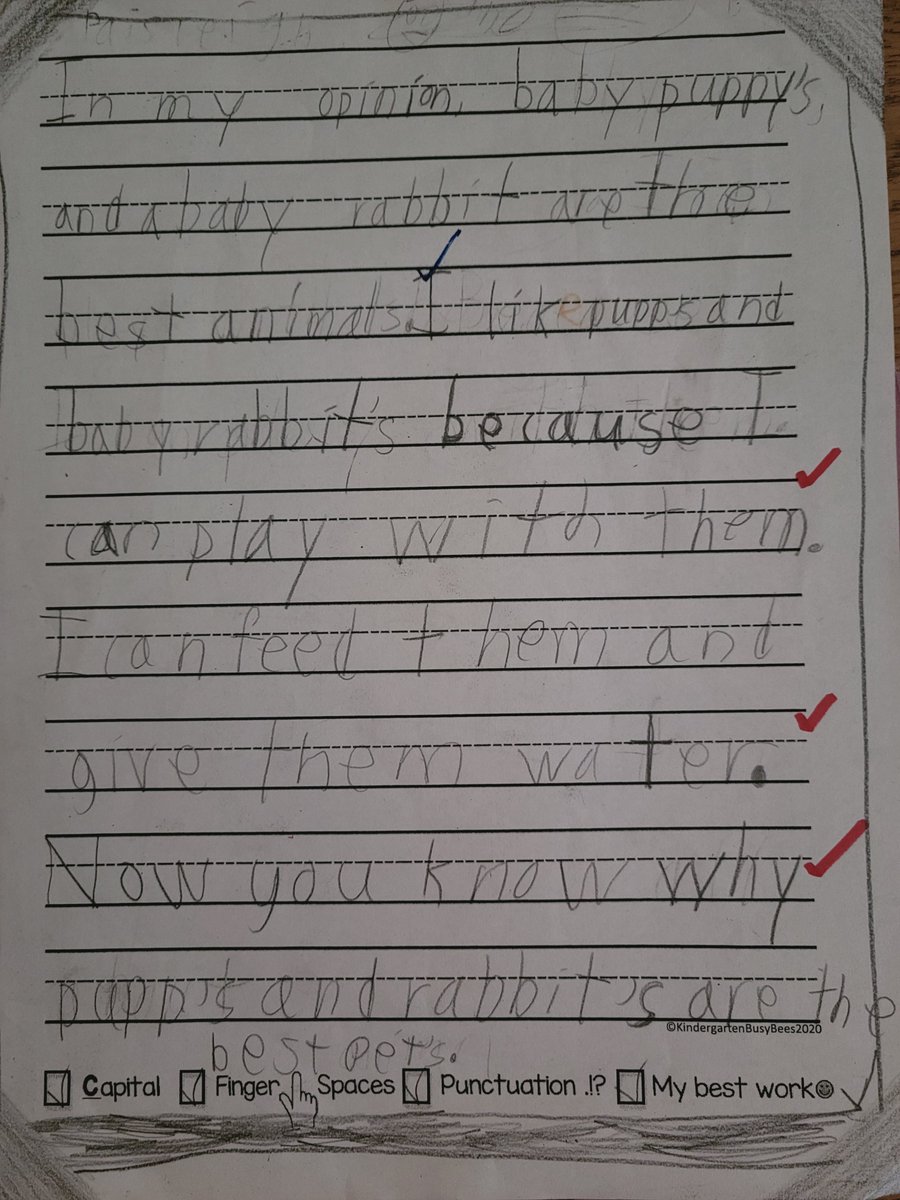 In my opinion, baby puppy's,
and a baby rabbit are the
best animals. I like pupps and
baby rabbit's because I
can play with them.
I can feed them and
give them water.
Now you know why
pupp's and rabbit's are the
©KindergartenBusyBees2020
best pet's.
Capital Finger Spaces Punctuation .!? My best work